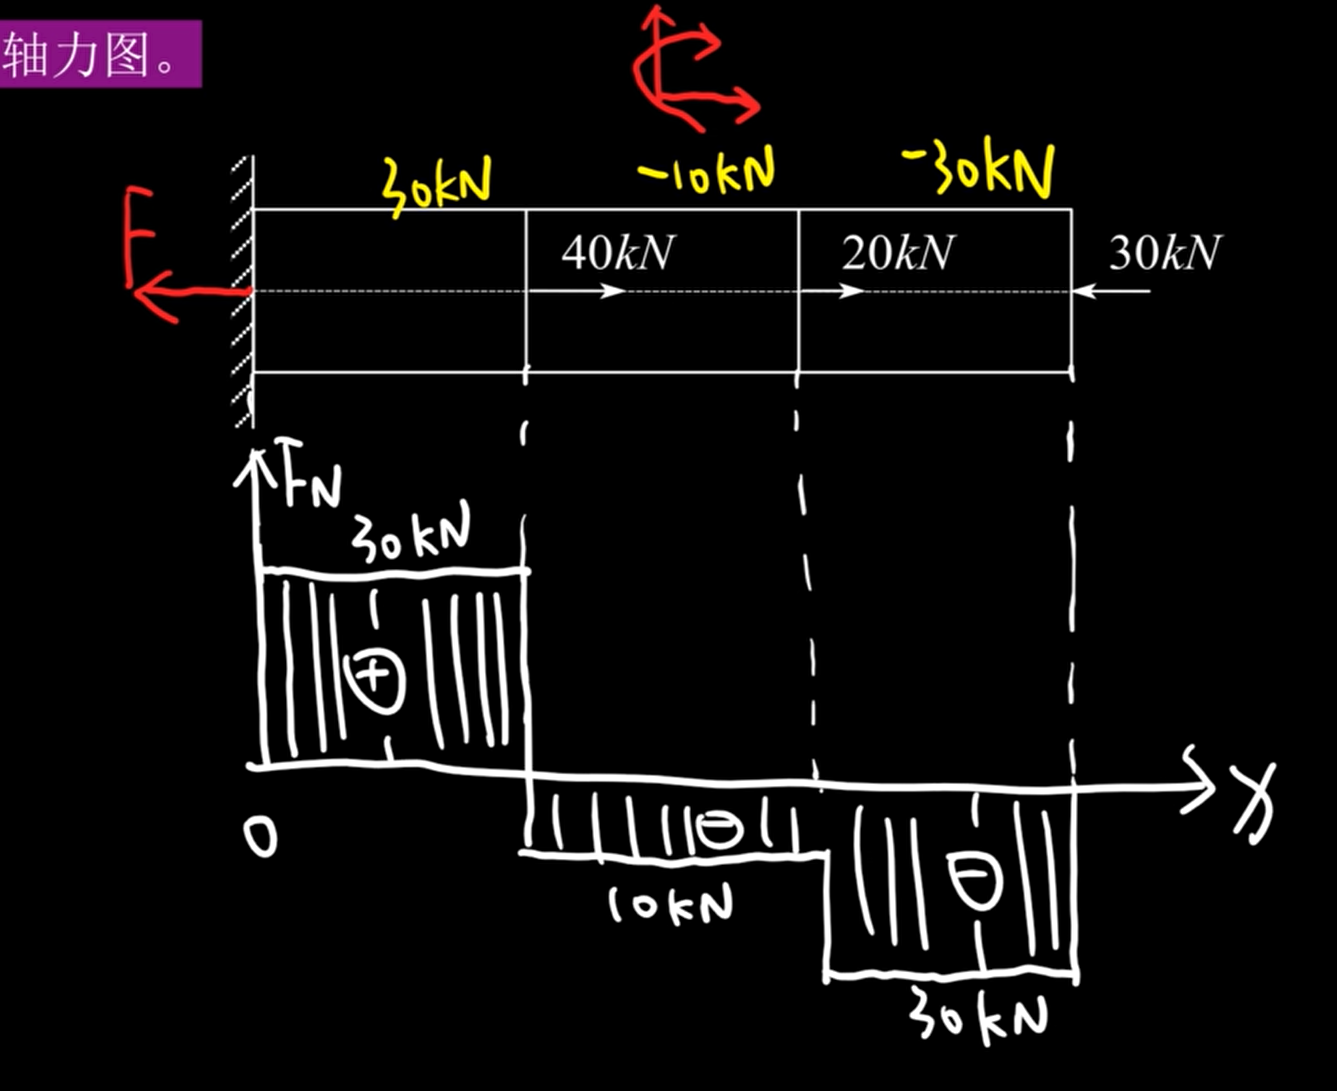 轴力图。
30kN -10kN -30kN
F
40kN 20kN 30kN
FN
30kN
+
0
-
-
x
10kN
30kN